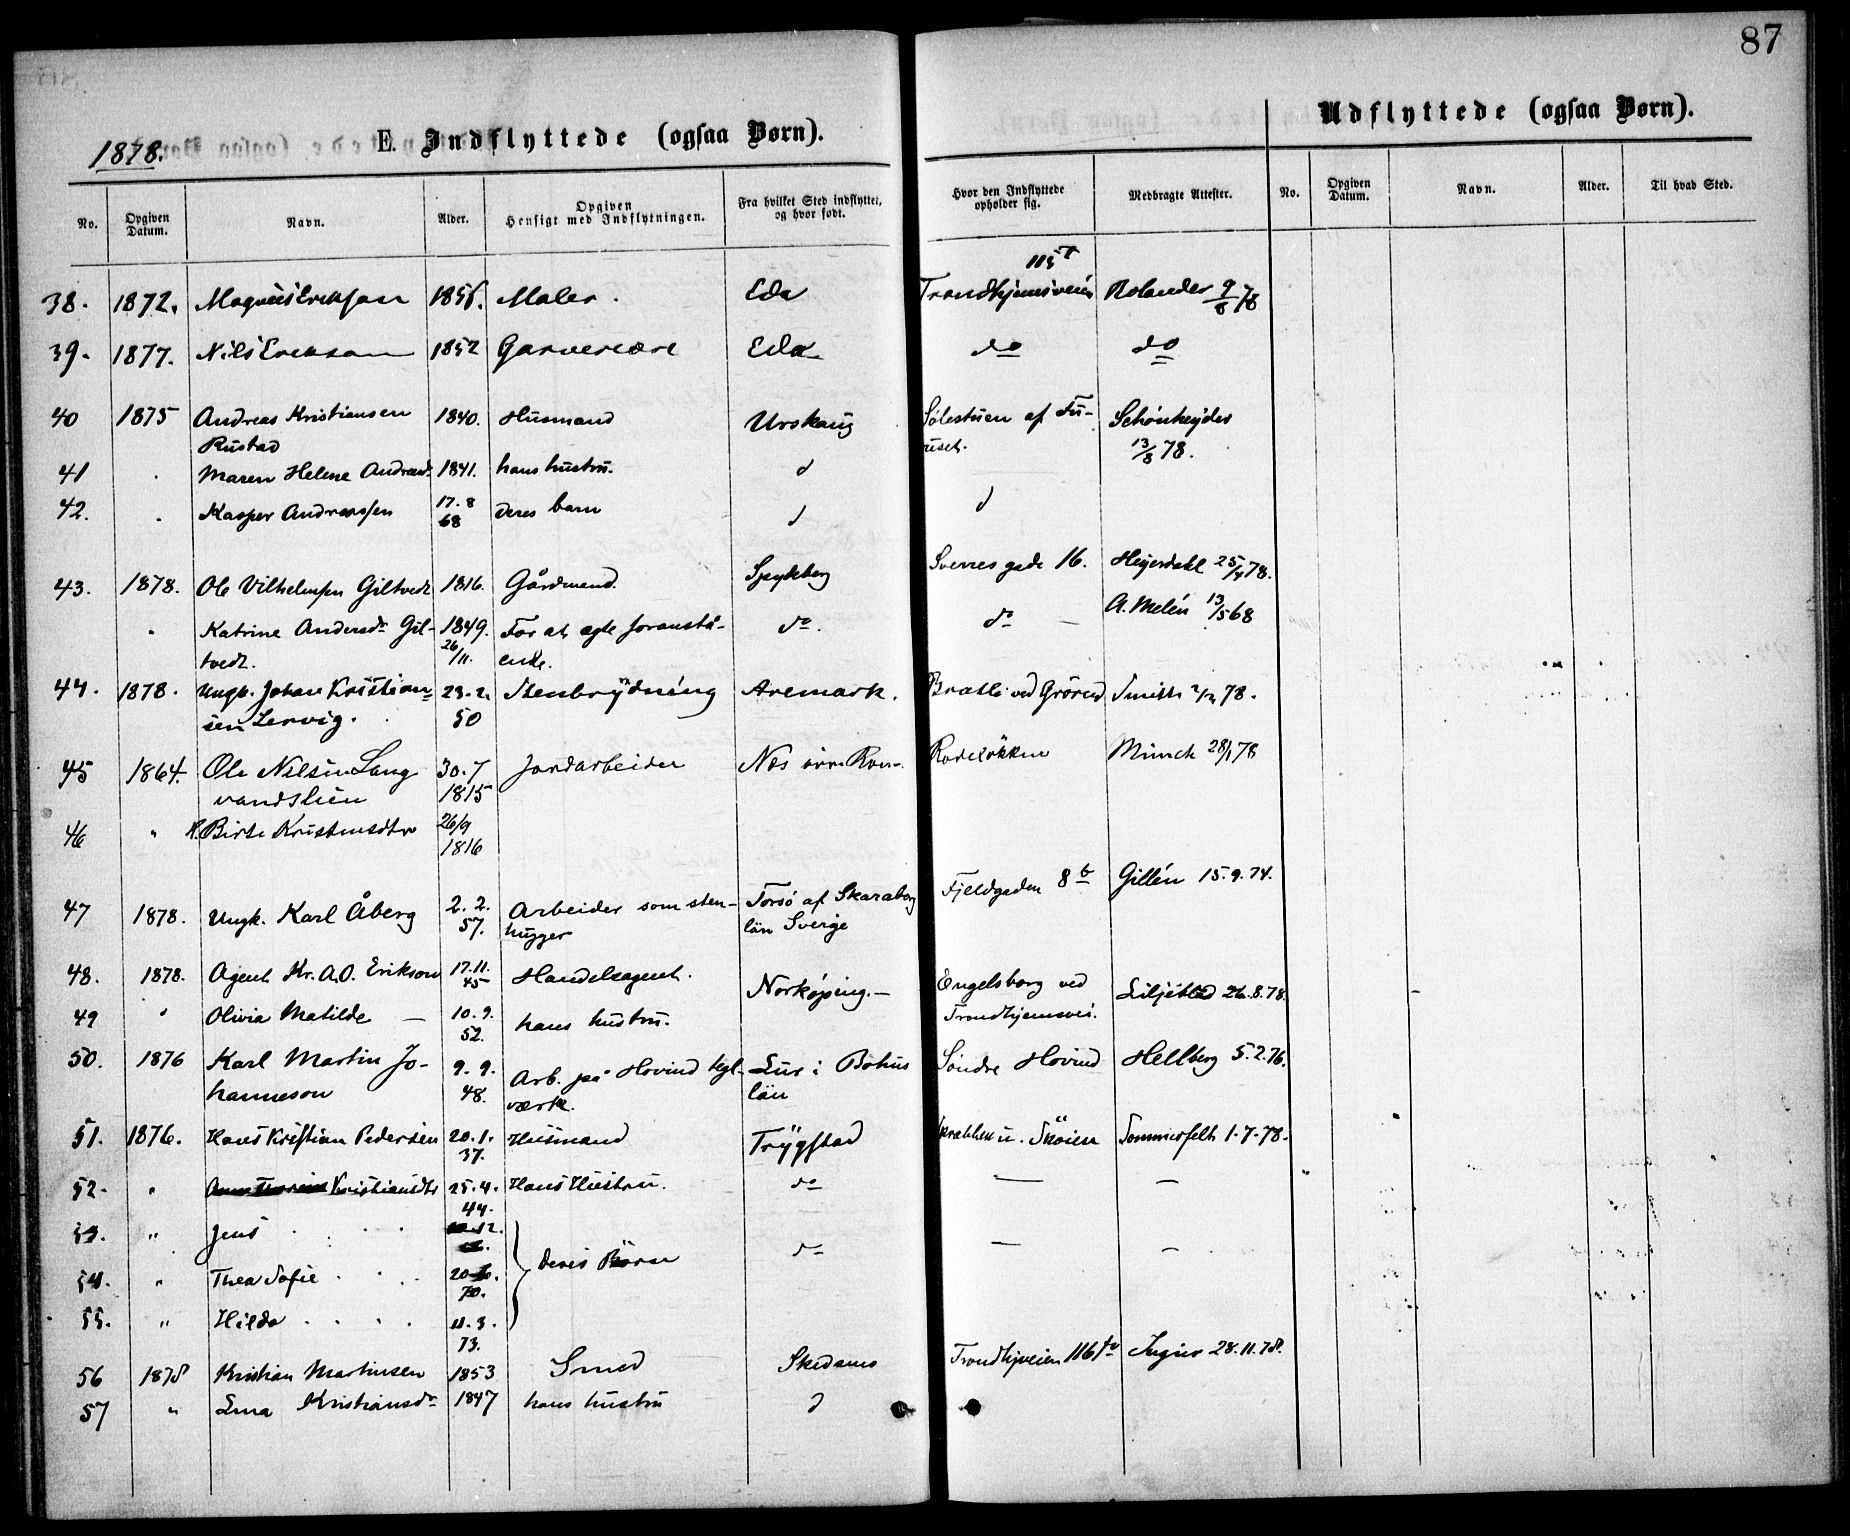 87
1878.
E. Indflyttede (ogsaa Børn).
Udflyttede (ogsaa Børn).
No.
Opgiven Datum.
Navn.
Alder.
Opgiven Hensigt med Indflytningen.
Fra hvilket Sted indflyttet, og hvor født.
Hvor den Indflyttede opholder sig.
Medbragte Attester.
No.
Opgiven Datum.
Navn.
Alder.
Til hvad Sted.
38. 1872. Magnus Erikson Maler. Eda Trondhjemsveien Rolander 9/8 78
39. 1877. Nils Erikson 1852 Eda do do
40 1875 Andreas Kristiansen 1840. Husmand Urskoug Sølestuen af Fu-
Rustad uset. 13/8 78.
41 Maren Helene 1841. hans hustru. d
42. Kasper Andreassen 17.8 deres barn d d
68
43. 1878. Ole Vilhelmsen Giltvedt 1816. Gårdmand. Spydeberg Sverres gade 16. Heyerdahl 25/4 78.
Katrine Andersdr Gil- 1849. For at egte foranstå- do. do A. Melén 13/5 68
tvedt. 26/11. ende.
44. 1878. Ungk. Johan Kristian- 23.2. Stenbrydning Aremark. Smith 78.
sen Lervig. 50
45 1864. Ole Nilsen Lang 30.7 Jordarbeider Rodeløkken Münch 28/1 78
vandslien 1815
46 " H. Birte 26/9
1816
47 1878. Ungk. Karl Åberg 2.2. Arbeider som sten- Torsö af Skaraborg Fjeldgaden 8b Gillén 15.9.74.
57. hugger län Sverige
48. 1878. Agent Kr. A.O. Erikson 17.11. Handelsagent. Norköping.— Engelsborg ved Liljeblad 26.8.78.
45
49 " Olivia Matilde — 10.9. hans hustru. Trondhjemsvei.
52.
50. 1876 Karl Martin Jo- 9.9. Arb. på Hovind tegl- Lur i Bohus Søndre Hovind Hellberg 5.2.76.
hanneson 48. værk. län
51. 1876. Hans Kristian Pedersen 20.1. Husmand Trygstad u. Skøien Sommerfelt 1-7-78.
37.
52. " Kristiansdtr 25.4. Hans Hustru. do — —
44.
53. " Jens do — —
54. " Thea Sofie 20 Deres Børn
70.
55. " Hilda 11.3.
73.
56 1878 Kristian Martinsen 1853 Smed Skedsmo Trondhjveien 28.11.78.
57 " Lina Kristiansdr 1847 hans hustru d